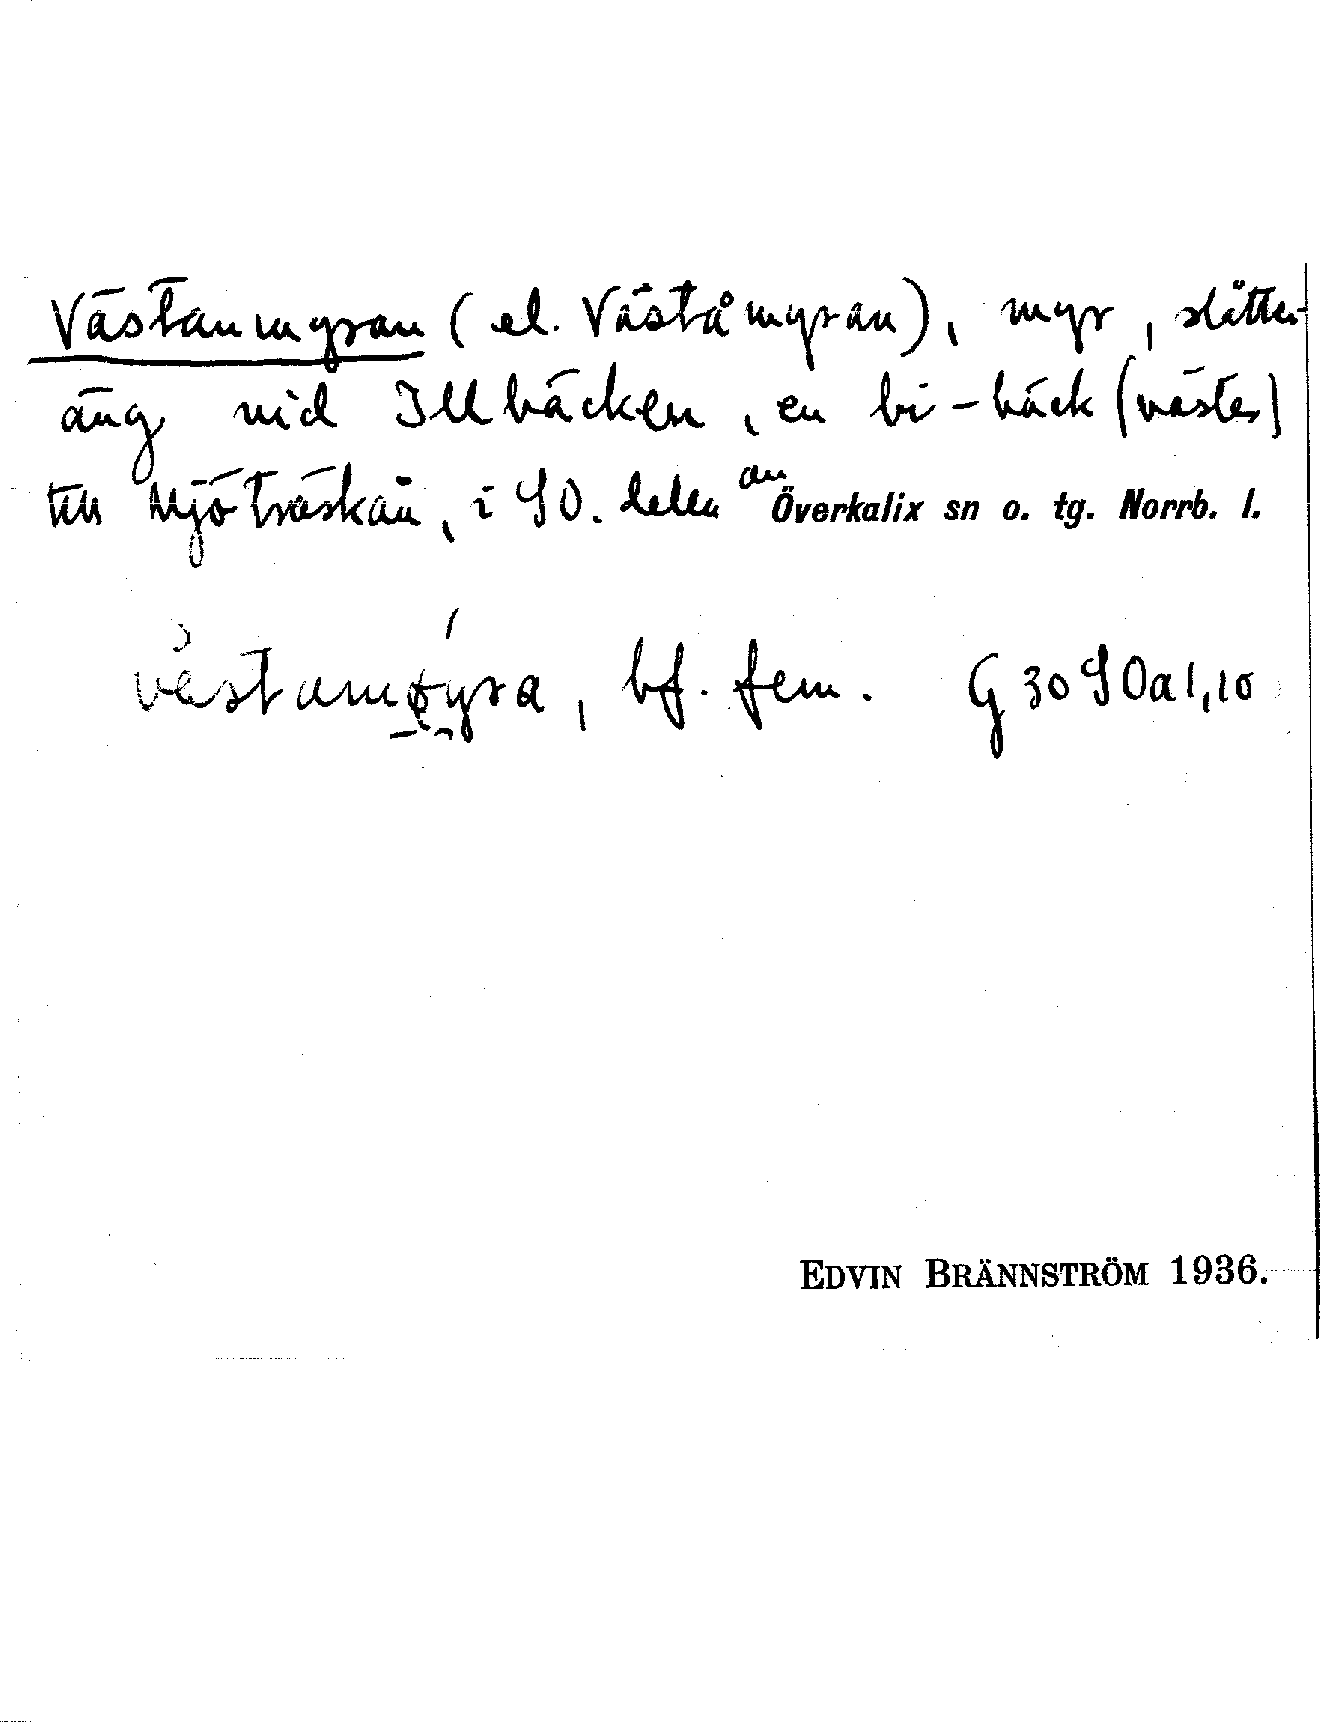 Västanmyran (el. Väståmyran), myr, slätter-
äng vid Illbäcken, en bi-bäck (väster)
till Mjöträskån, i SO. delen av Överkalix sn o. tg. Norrb. l.
västamøyra, bf. fem. G 30 SOa1,10
EDVIN BRÄNNSTRÖM 1936.